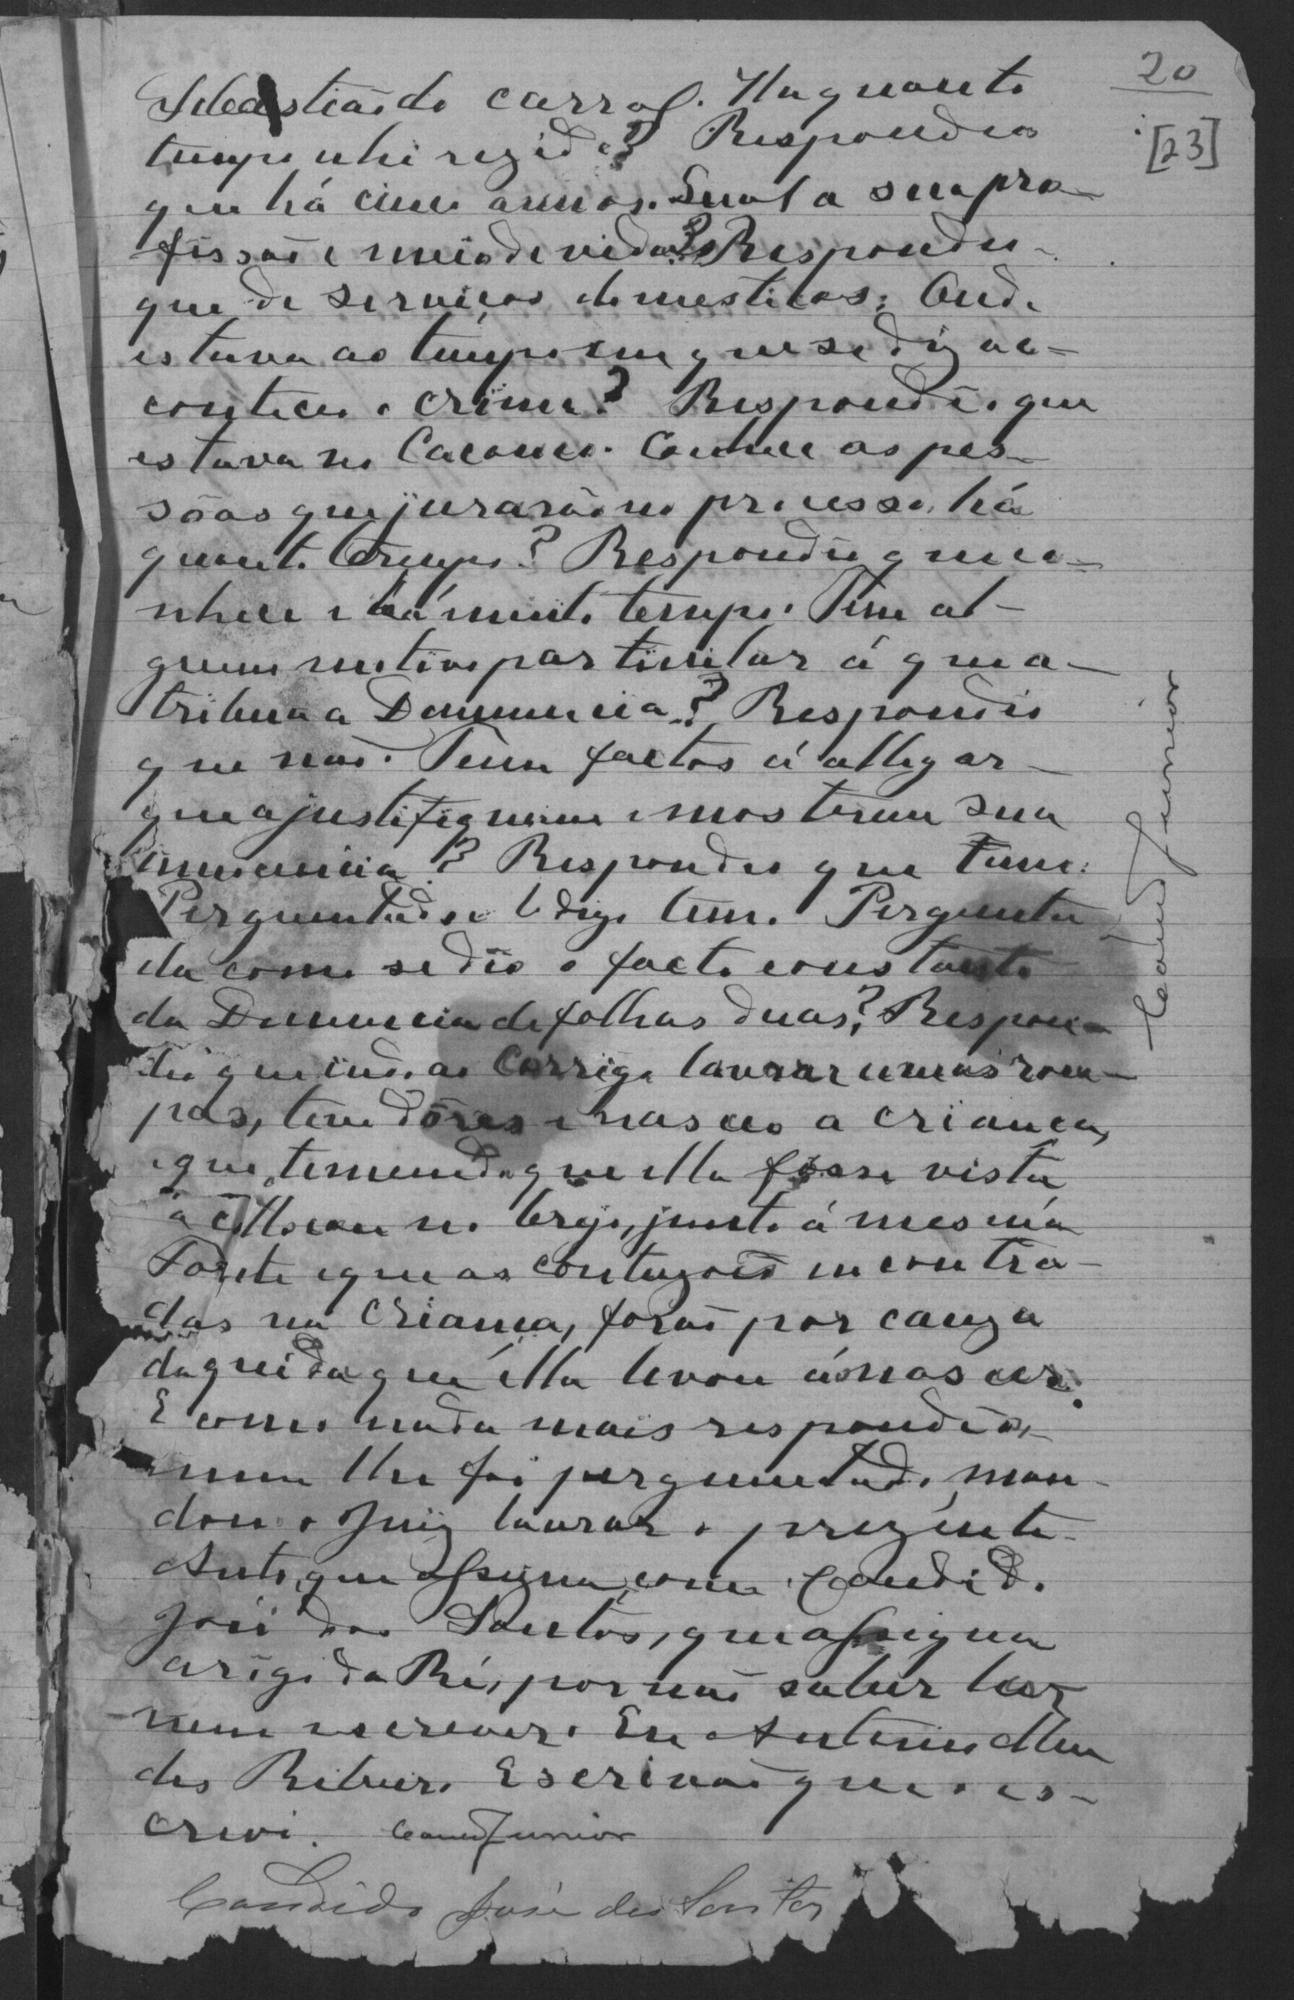 20
[23]
Sebastião do carrol. Ha quanto
tempo ahi rezide? Respondeo
que há cinco annos. Qual a sua pro-
fissão e meio de vida? Respondeu
que de serviços domesticos. Onde
estava ao tempo em que se diz ac-
conteceo o crime? Respondêo que
estava no Cacouco. Conhece as pes-
sôas que jurarão no processo, há
quanto tempo? Respondeu que co-
nhece e há muito tempo. Tem al-
gum motivo particular á que a-
tribua a Denuncia? Respondeo
que não. Tem factos á allegar
que a justifiquem e mostrem sua
innocencia? Respondeo que tem.
Perguntado se digo tem. Pergunta
da como se dêo o facto constante
da Denuncia de folhas duas? Respon-
dêo que indo ao Corrigo lavar umas rou-
pas, teve dôres e nasceo a criança,
e que temendo que ella fosse vista
a collocou no brejo, junto á mesma
Fonte e que as contuzois encontra-
das na criança, forão por cauza
da queida que ella levou ao nascer.
E como nada mais respondeo,
nem lhe foi perguntado, man-
dou o Juiz lavrar o prezente
Auto, que assigna com Candido
José dos Santos, que assigna
a rôgo da Ré, por não saber ler
nem escrever. Eu Antonio Men
des Ribeiro Escrivão que o es-
crevi. Leonel Junior
Candido José dos Santos
Leonel Junior